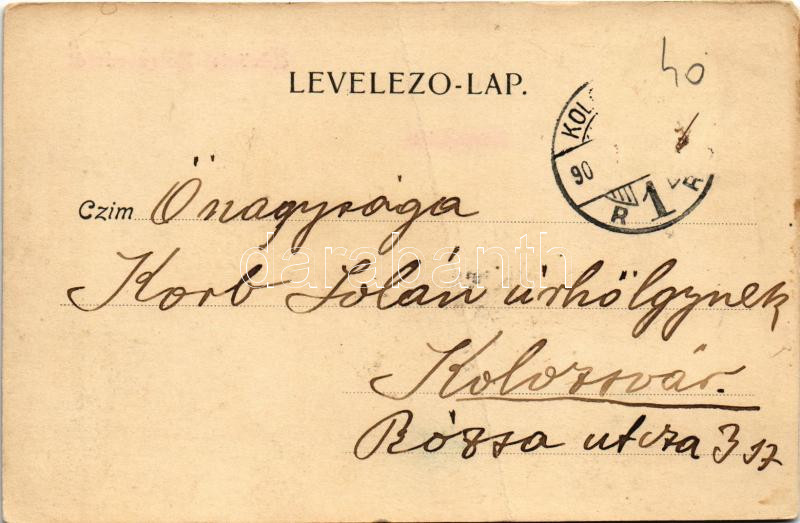 LEVELEZO-LAP.
40
KOL
90
R 1 R
Czim Őnagysága
Korb Jolán úrhölgynek
darabanth
Kolozsvár.
Rózsa utcza 3 sz